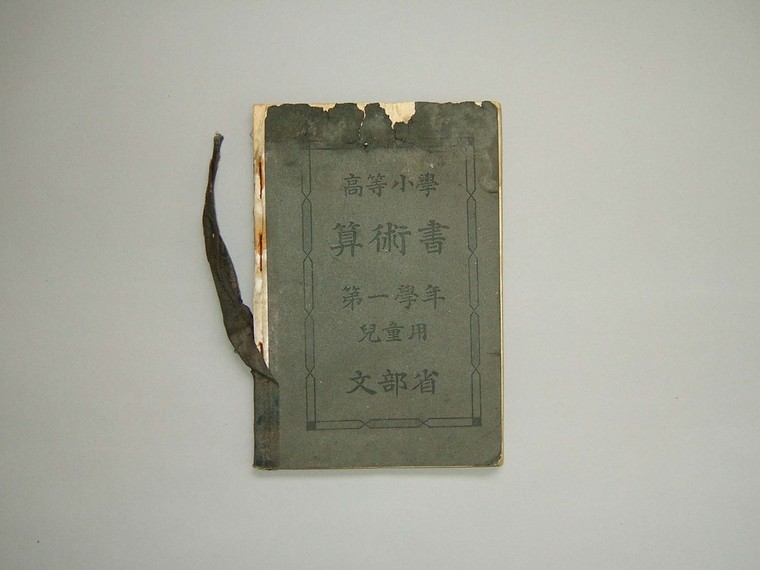 高等小學
算術書
第一學年
兒童用
文部省